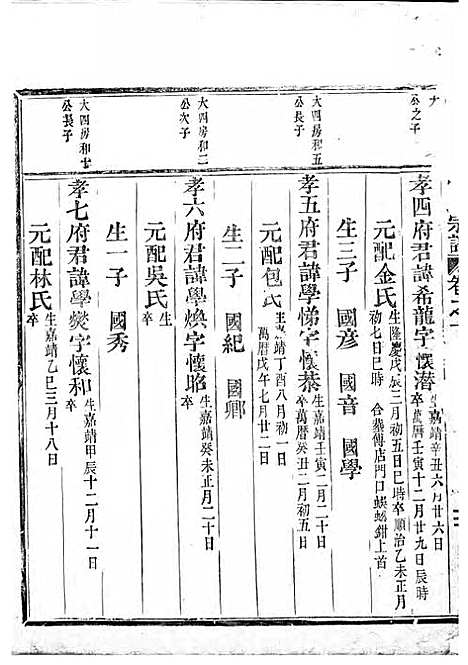 宗譜 卷之
公之子
孝四府君諱希龍字懷潛生嘉靖辛丑六月廿六日卒萬曆壬寅十二月廿九日辰時
元配金氏生隆慶戊辰三月初五日巳時卒順治乙未正月初七日巳時 合葬傅店門口蜈蚣鉗上首
生三子 國彦 國音 國學
大四房和五公長子
孝五府君諱學悌字懷恭生嘉靖壬寅二月二十日卒萬曆癸丑二月初五日
元配包氏生嘉靖丁酉八月初一日卒萬曆戊午七月廿二日
生二子 國紀 國卿
大四房和二公次子
孝六府君諱學煥字懷昭生嘉靖癸未正月二十日卒
元配吳氏生卒
生一子 國秀
大四房和七公長子
孝七府君諱學爕字懷和生嘉靖甲辰十二月十一日卒
元配林氏生嘉靖乙巳三月十八日卒